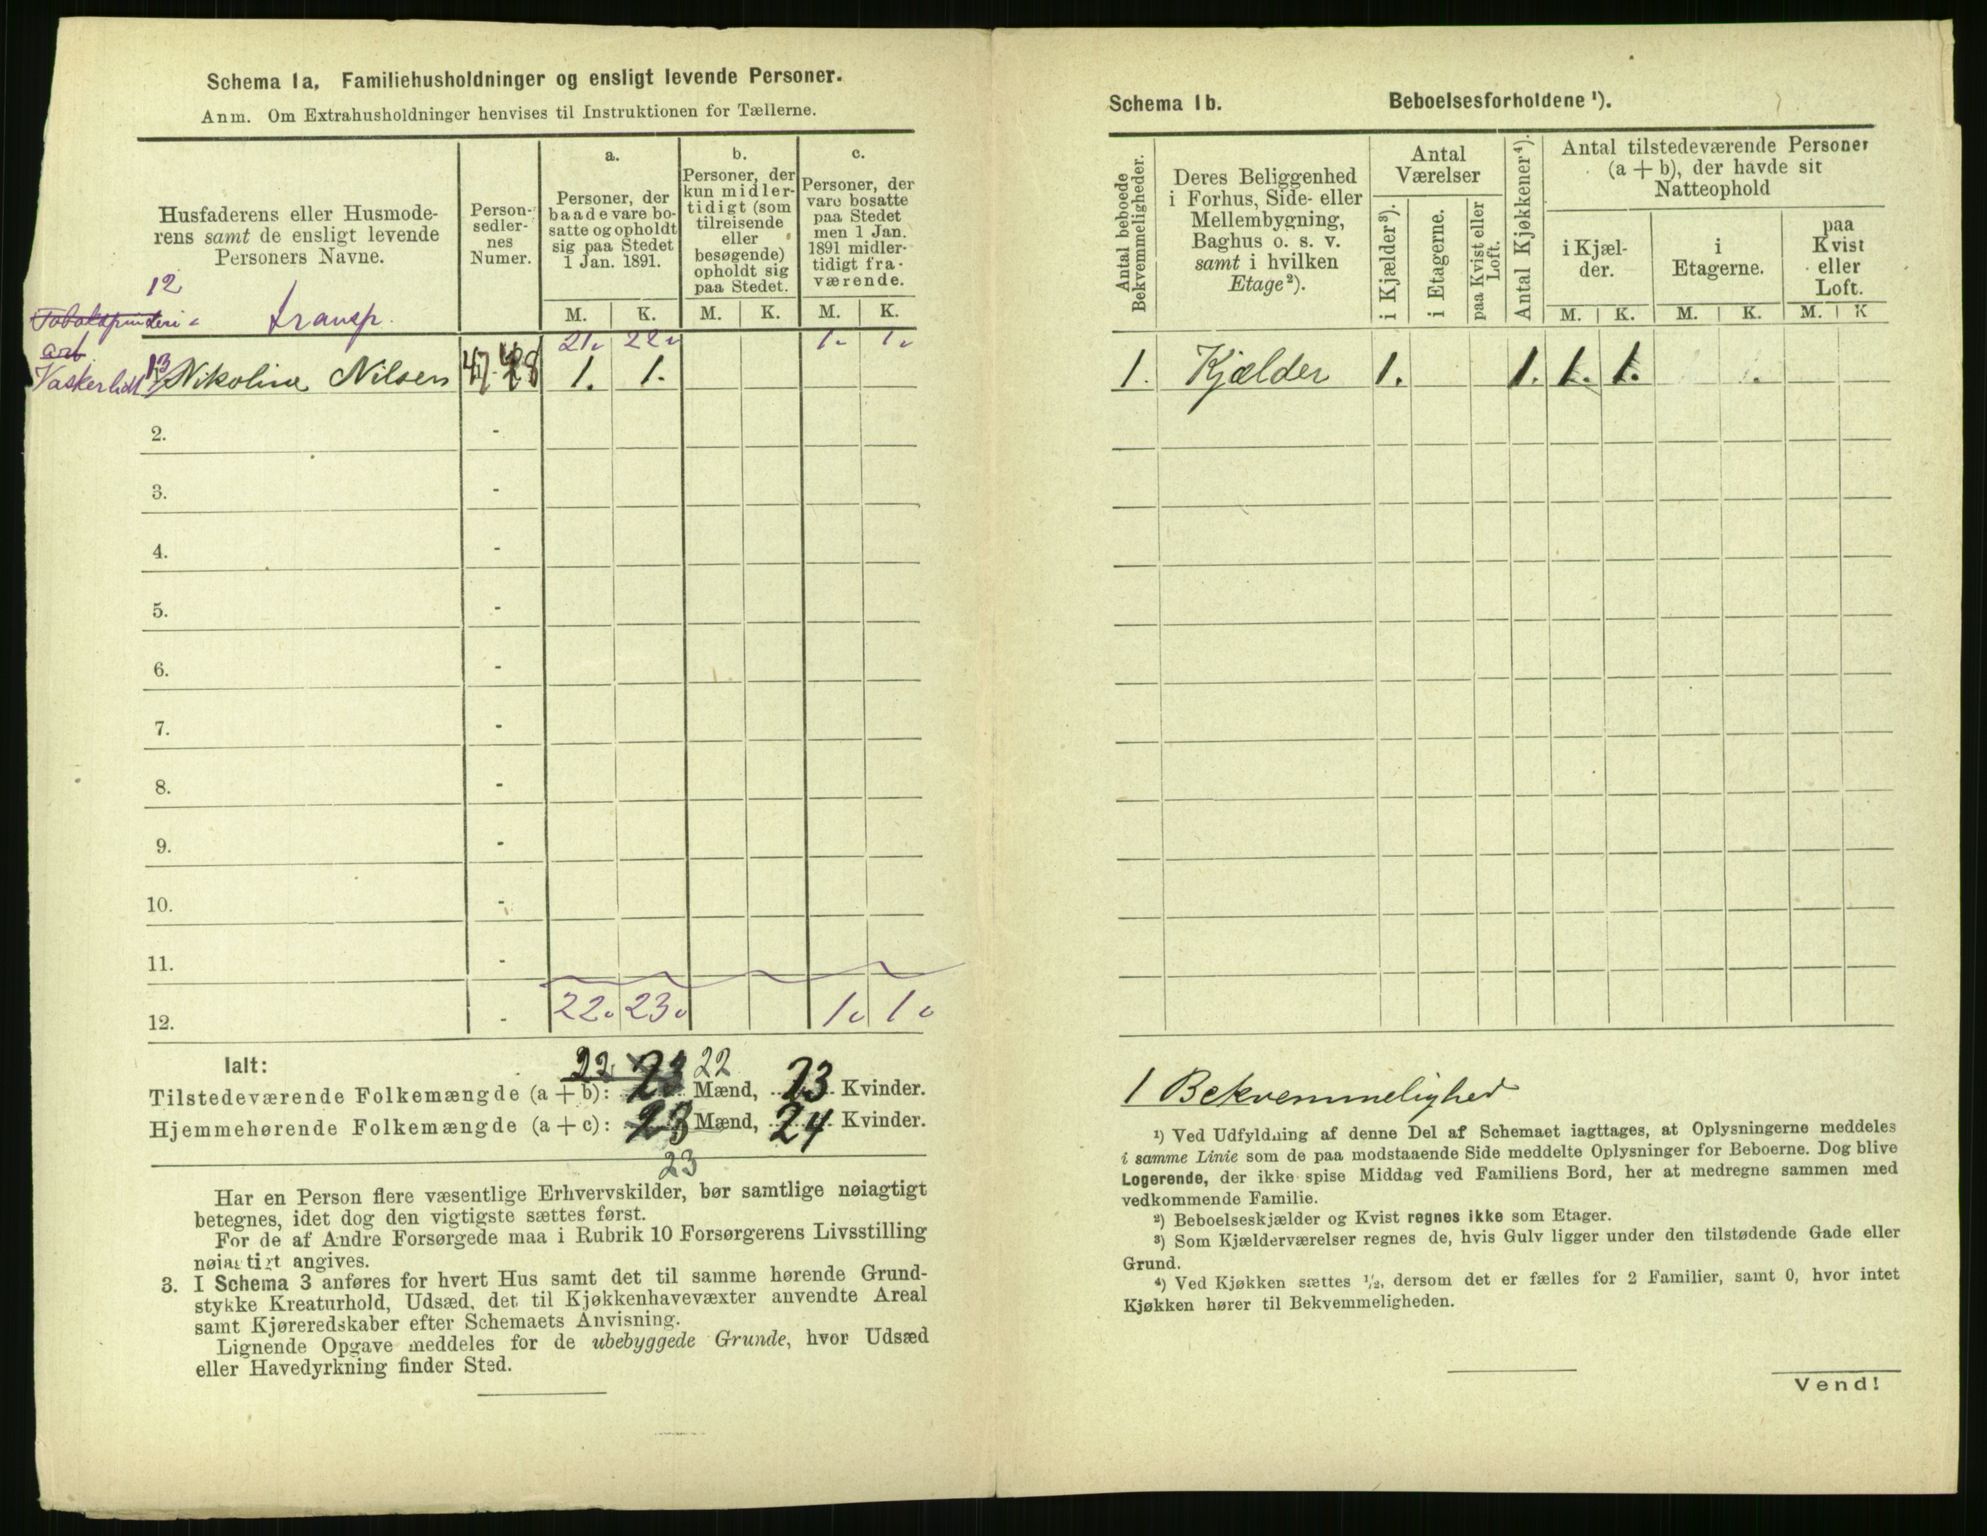 Schema 1a. Familiehusholdninger og ensligt levende Personer.
Anm. Om Extrahusholdninger henvises til Instruktionen for Tællerne.
Husfaderens eller Husmode-
rens samt de ensligt levende
Personers Navne.
Person-
sedler-
nes
Numer.
a.
Personer, der
baade vare bo-
satte og opholdt
sig paa Stedet
1 Jan. 1891.
M. K.
b.
Personer, der
kun midler-
tidigt (som
tilreisende
eller
besøgende)
opholdt sig
paa Stedet.
M. K.
c.
Personer, der
vare bosatte
paa Stedet
men 1 Jan.
1891 midler-
tidigt fra-
værende.
M. K.
12
Tobakspinderi-
transp.
21. 22. 1. 1.
arb.
Vaskerhdl 13 Nikoline Nilsen 47-48 1. 1.
2. -
3. -
4. -
5. -
6. -
7. -
8. -
9. -
10. -
11. -
12. - 22. 23. 1. 1.
Ialt:
22 22
Tilstedeværende Folkemængde (a + b): 23 Mænd, 23 Kvinder.
Hjemmehørende Folkemængde (a + c): 23 Mænd, 24 Kvinder.
23
Har en Person flere væsentlige Erhvervskilder, bør samtlige nøiagtigt
betegnes, idet dog den vigtigste sættes først.
For de af Andre Forsørgede maa i Rubrik 10 Forsørgerens Livsstilling
nøiagtigt angives.
3. I Schema 3 anføres for hvert Hus samt det til samme hørende Grund-
stykke Kreaturhold, Udsæd, det til Kjøkkenhavevæxter anvendte Areal
samt Kjøreredskaber efter Schemaets Anvisning.
Lignende Opgave meddeles for de ubebyggede Grunde, hvor Udsæd
eller Havedyrkning finder Sted.
Schema 1b. Beboelsesforholdene ¹).
Antal beboede
Bekvemmeligheder.
Deres Beliggenhed
i Forhus, Side- eller
Mellembygning,
Baghus o. s. v.
samt i hvilken
Etage²).
Antal
Værelser
i Kjælder³).
i Etagerne.
paa Kvist eller
Loft.
Antal Kjøkkener⁴).
Antal tilstedeværende Personer
(a + b), der havde sit
Natteophold
i Kjæl-
der.
M. K.
i
Etagerne.
M. K.
paa
Kvist
eller
Loft.
M. K
1. Kjælder 1. 1. 1. 1.
1 Bekvemmelighed
¹) Ved Udfyldning af denne Del af Schemaet iagttages, at Oplysningerne meddeles
i samme Linie som de paa modstaaende Side meddelte Oplysninger for Beboerne. Dog blive
Logerende, der ikke spise Middag ved Familiens Bord, her at medregne sammen med
vedkommende Familie.
²) Beboelseskjælder og Kvist regnes ikke som Etager.
³) Som Kjælderværelser regnes de, hvis Gulv ligger under den tilstødende Gade eller
Grund.
⁴) Ved Kjøkken sættes ¹/₂, dersom det er fælles for 2 Familier, samt 0, hvor intet
Kjøkken hører til Bekvemmeligheden.
Vend!